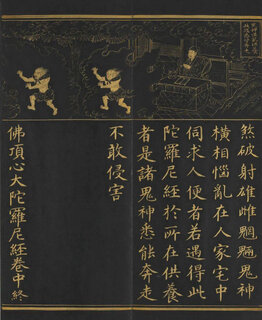 煞破射雄雌魍魎鬼神
橫相惱亂在人家宅中
伺求人便者若遇得此
陀羅尼經於所在供養
者是諸鬼神悉能奔走
不敢侵害
佛頂心大陀羅尼經卷中終